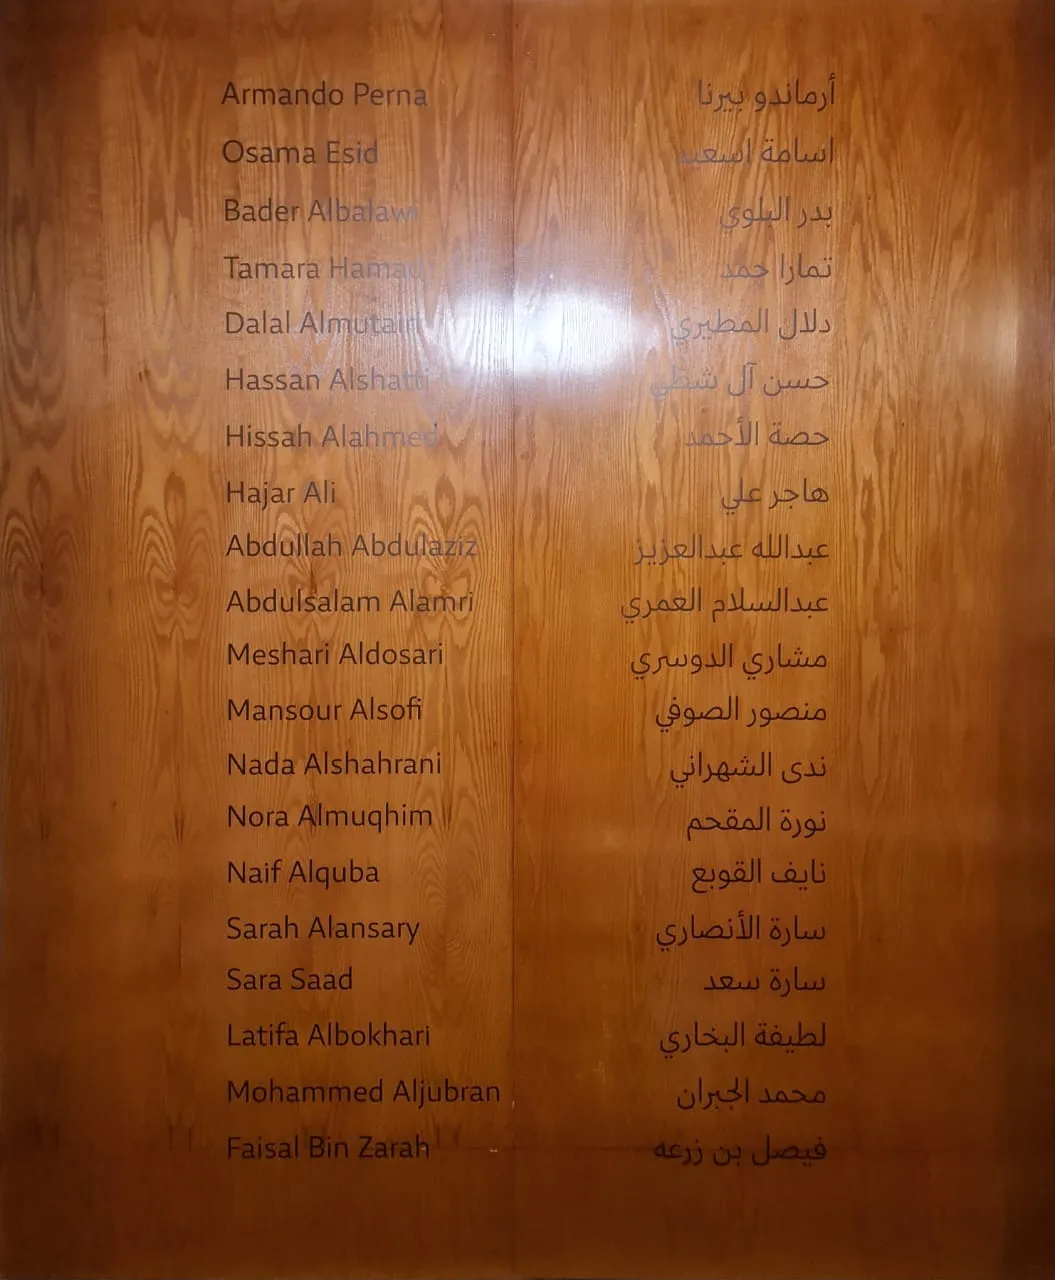 Armando Perna أرماندو بيرنا
Osama Esid اسامة اسعيد
Bader Albalawi بدر البلوي
Tamara Hamad تمارا حمد
Dalal Almutairi دلال المطيري
Hassan Alshatti حسن آل شطي
Hissah Alahmed حصة الأحمد
Hajar Ali هاجر علي
Abdullah Abdulaziz عبدالله عبدالعزيز
Abdulsalam Alamri عبدالسلام العمري
Meshari Aldosari مشاري الدوسري
Mansour Alsofi منصور الصوفي
Nada Alshahrani ندى الشهراني
Nora Almuqhim نورة المقحم
Naif Alquba نايف القوبع
Sarah Alansary سارة الأنصاري
Sara Saad سارة سعد
Latifa Albokhari لطيفة البخاري
Mohammed Aljubran محمد الجبران
Faisal Bin Zarah فيصل بن زرعه